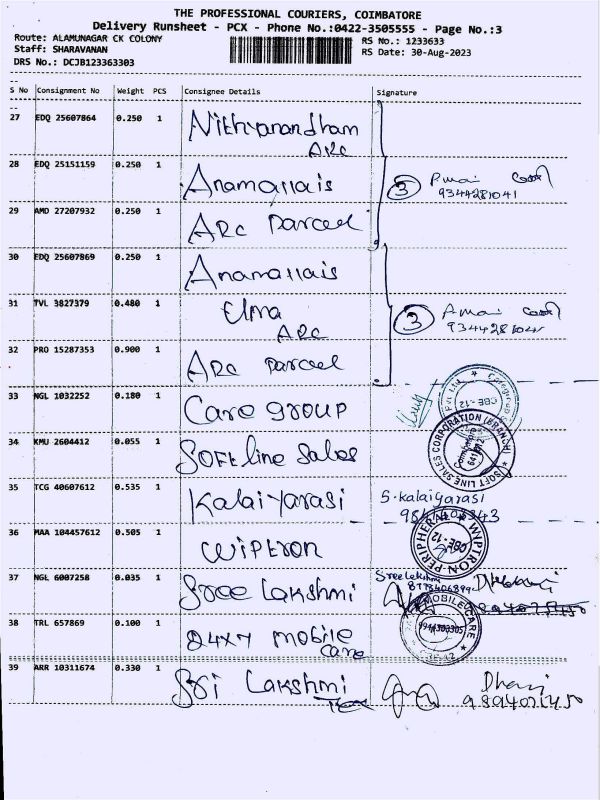 THE PROFESSIONAL COURIERS, COIMBATORE
Delivery Runsheet - PCX - Phone No.:0422-3505555 - Page No.:3
Route: ALAMUNAGAR CK COLONY RS No.: 1233633
Staff: SHARAVANAN RS Date: 30-Aug-2023
DRS No.: DCJB123363303
S No Consignment No Weight PCS Consignee Details Signature
27 EDQ 25607864 0.250 1 Nithyanandham
ARC
28 EDQ 25151159 0.250 1 Anamallais
3
9344281041
29 AMD 27207932 0.250 1 ARC Parcel
30 EDQ 25607869 0.250 1 Anamallais
31 TVL 3827379 0.480 1 Elma
ARC
3
32 PRO 15287353 0.900 1 ARC Parcel
33 NGL 1032252 0.180 1 Care group
CBE-12
34 KMU 2604412 0.055 1 Softline Sales
SOFT LINE SALES CORPORATION (BRANCH)
35 TCG 40607612 0.535 1 Kalaiyarasi S. kalaiyarasi
36 MAA 104457612 0.505 1 Wiptron
WIPTRON PERIPHERAL
CBE-12
37 NGL 6007258 0.035 1 Sree Lakshmi Sree Lakshmi
38 TRL 657869 0.100 1 24x7 mobile
care
MOBILE CARE
39 ARR 10311674 0.330 1 Sri Lakshmi